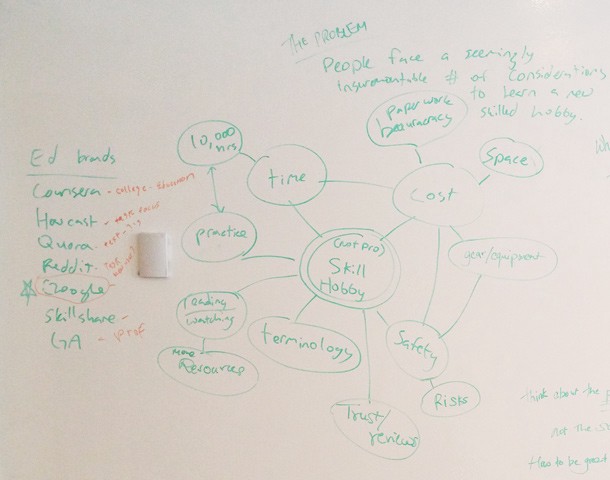 THE PROBLEM
People face a seemingly
insurmountable # of considerations
to learn a new
skilled hobby.
Ed brands
Coursera -
Howcast -
Quora -
Reddit -
Google -
Skillshare -
GA - prof
10,000
hrs
time
practice
paperwork
Space
Cost
gear/equipment
(not pro)
Skill
Hobby
reading
watching
more
Resources
terminology
Safety
Risks
Trust/
reviews
Think about the
not the
How to be great